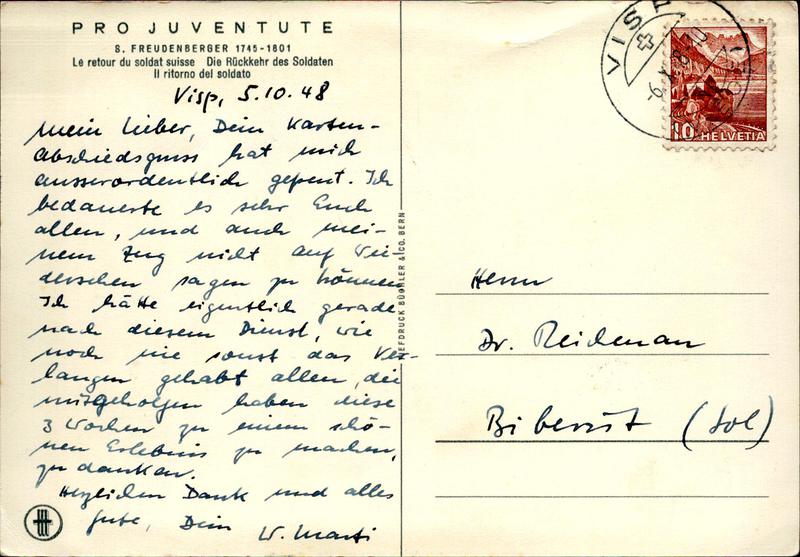 PRO JUVENTUTE
S. FREUDENBERGER 1745-1801
Le retour du soldat suisse Die Rückkehr des Soldaten
Il ritorno del soldato
Visp, 5.10.48
Mein lieber, Dein Karten-
Abschiedsgruss hat mich
ausserordentlich gefreut. Ich
bedauerte es sehr Euch
allen, und auch mei-
nem Zug nicht auf Wie-
dersehen sagen zu können
Ich hätte eigentlich gerade
nach diesem Dienst, wie
noch nie sonst das Ver-
langen gehabt allen, die
mitgeholfen haben diese
3 Wochen zu einem schö-
nen Erlebnis zu machen,
zu danken.
Herzlichen Dank und alles
Gute, Dein W. Marti
TIEFDRUCK BÜCHLER & CO. BERN
VISP
HELVETIA
10
Herrn
Dr. Reidenau
Biberist (Sol)